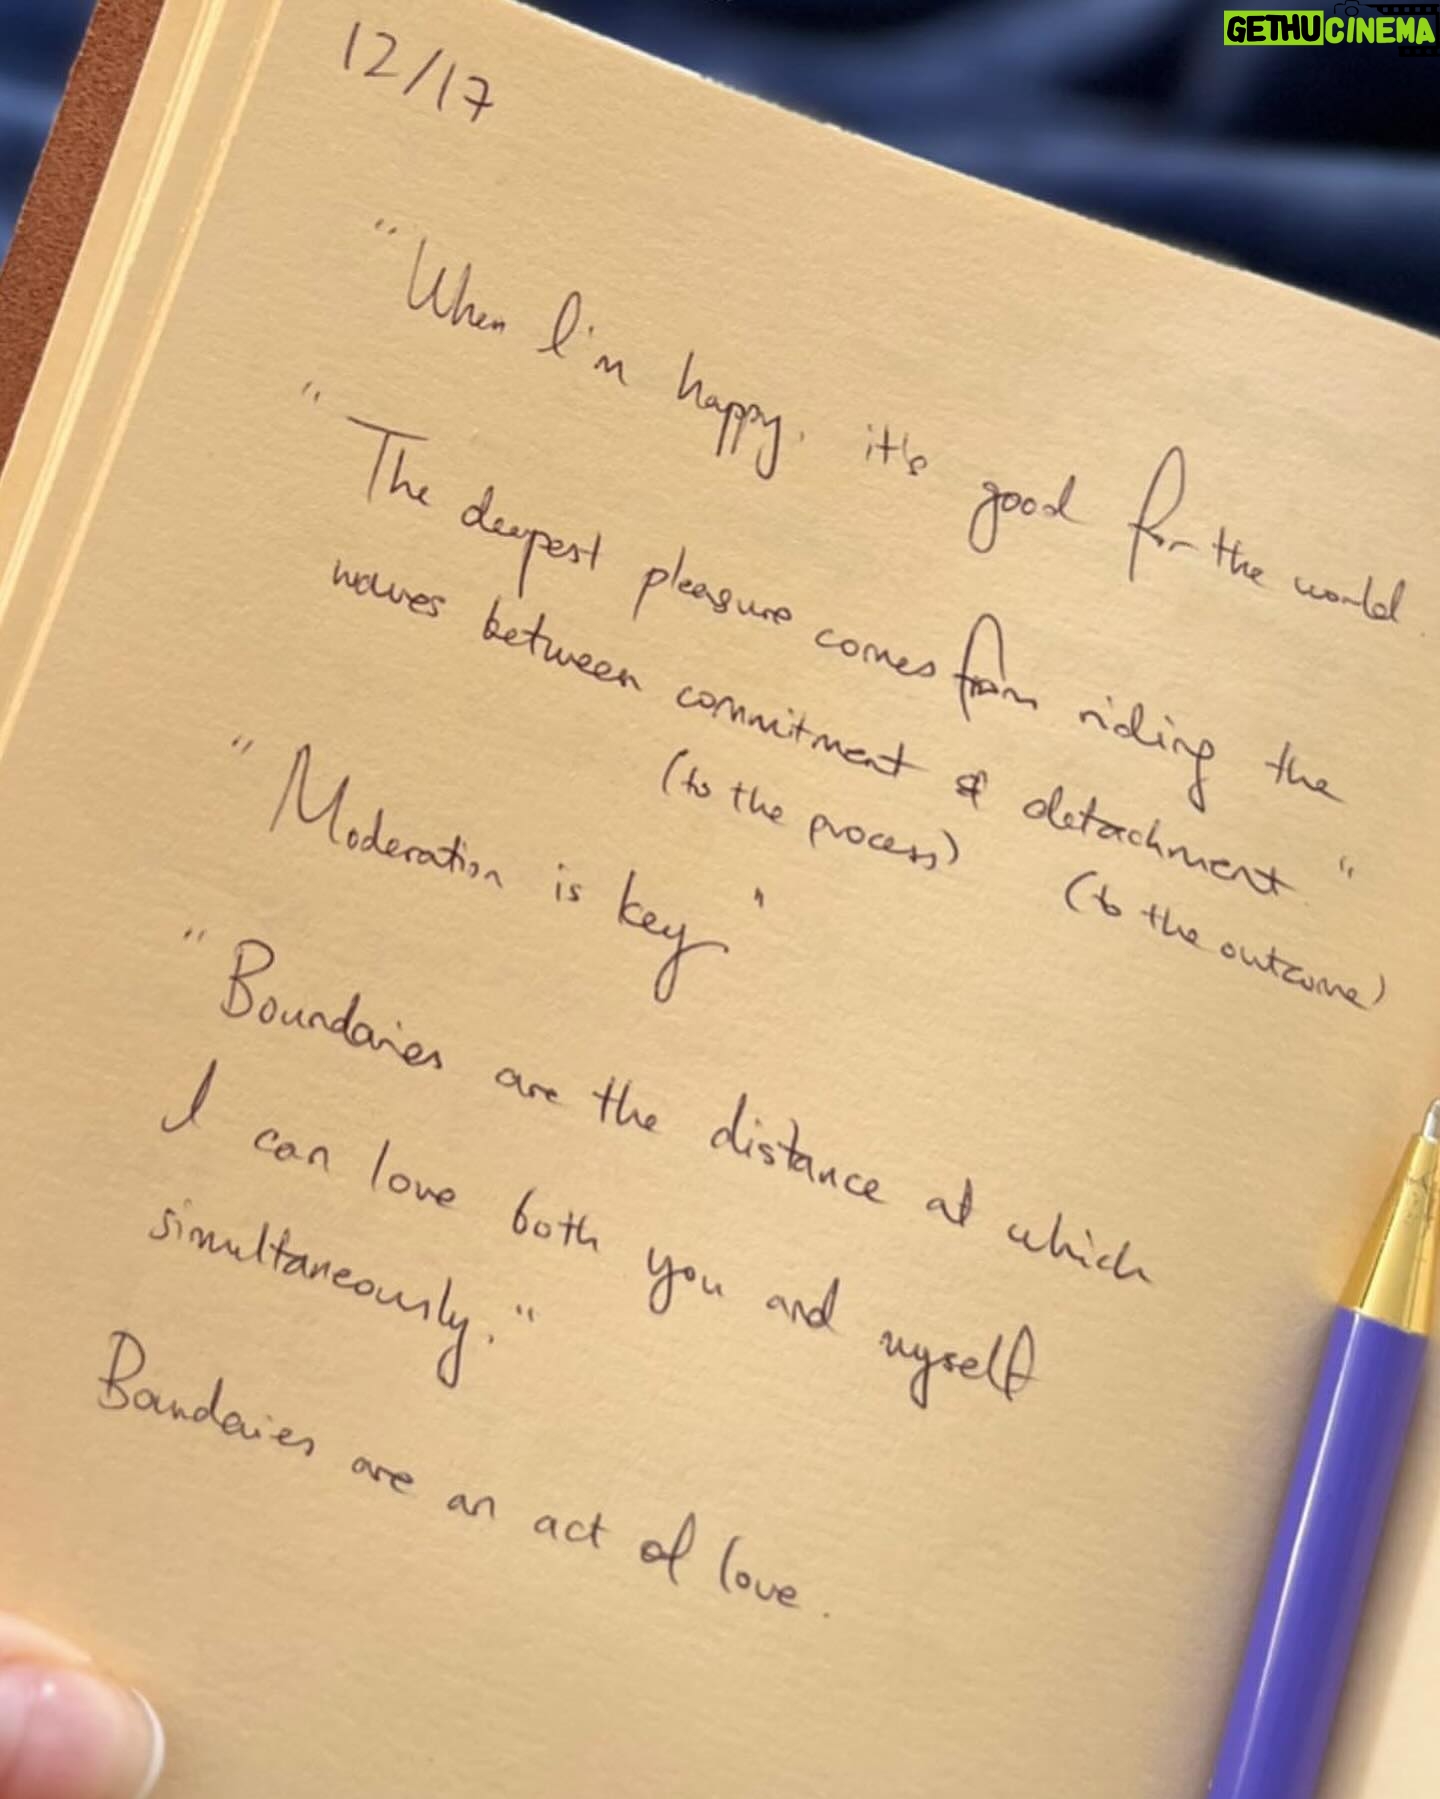 GETHUCINEMA
12/17
"When I'm happy, it's good for the world.
"The deepest pleasure comes from riding the
waves between commitment & detachment."
(to the process) (to the outcome)
"Moderation is key"
"Boundaries are the distance at which
I can love both you and myself
simultaneously."
Boundaries are an act of love.